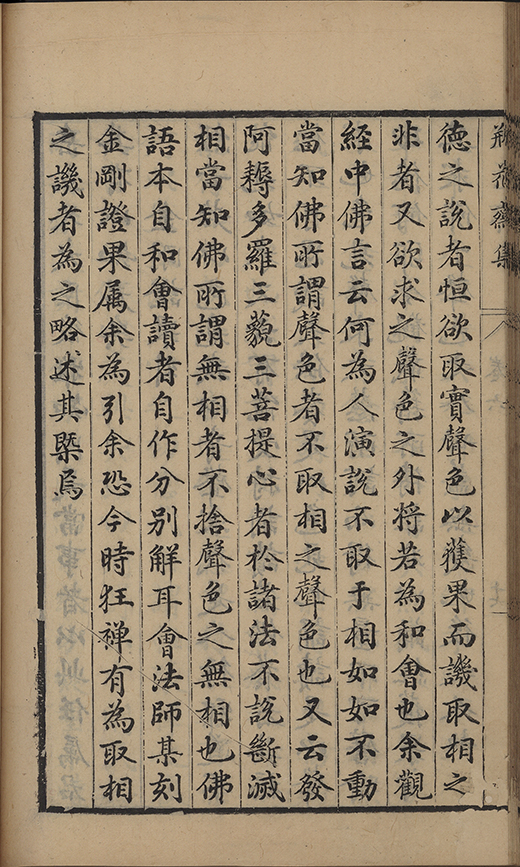 瓶花齋集
德之說者恒欲取實聲色以獲果而譏取相之
非者又欲求之聲色之外将若為和會也余觀
經中佛言云何為人演說不取于相如如不動
當知佛所謂聲色者不取相之聲色也又云發
阿耨多羅三藐三菩提心者於諸法不說斷滅
相當知佛所謂無相者不捨聲色之無相也佛
語本自和會讀者自作分别解耳會法師某刻
金剛證果属余為引余恐今時狂禅有為取相
之譏者為之略述其槩焉